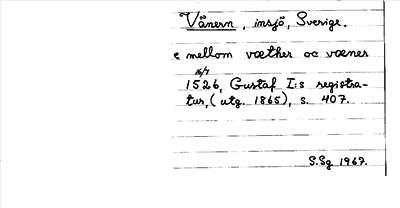 Vänern, insjö, Sverige.
e mellom væther oc wæner
16/7
1526, Gustaf I:s registra-
tur, (utg. 1865), s. 407.
S.Sg 1967.